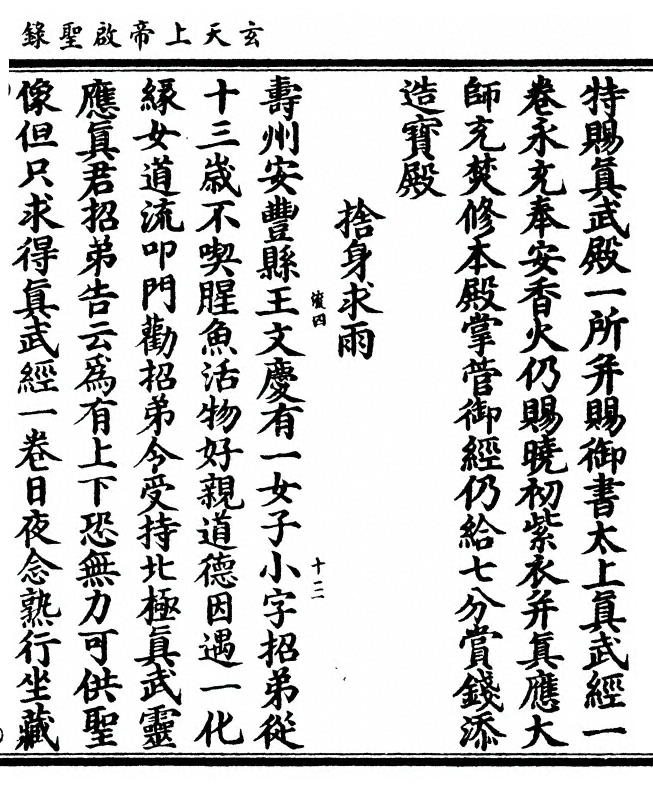 玄天上帝啟聖錄
特賜眞武殿一所并賜御書太上眞武經一
卷永充奉安香火仍賜曉初紫衣并眞應大
師充焚修本殿掌管御經仍給七分賞錢添
造寶殿
捨身求雨
十二
壽州安豐縣王文慶有一女子小字招弟從
十三歲不喫腥魚活物好親道德因遇一化
緣女道流叩門勸招弟令受持北極眞武靈
應眞君招弟告云爲有上下恐無力可供聖
像但只求得眞武經一卷日夜念熟行坐藏